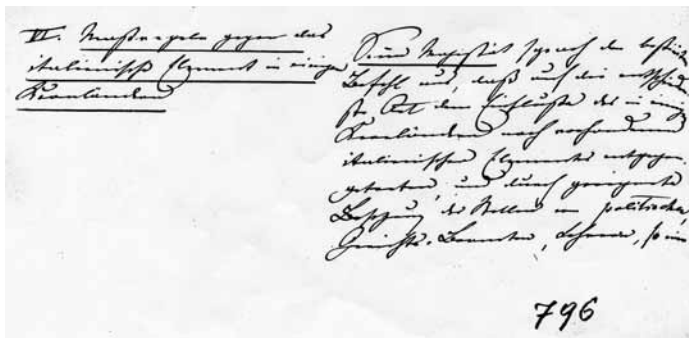 VI. Maßregeln gegen das
italienische Element in einigen
Kronländern
Seine Majestät sprach den bestimten
Befehl aus, daß auf die entschieden
ste Art dem Einfluße des in einig
Kronländern noch vorhandenen
italienischen Elements entgegen-
getreten, und durch geeignete
Besetzung der Stellen von politischen,
Gerichts-Beamten, Lehrern, so wie
796